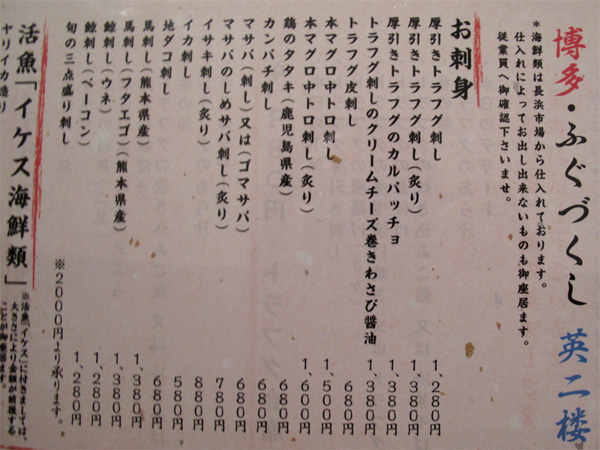 博多・ふぐづくし 英二楼
*海鮮類は長浜市場から仕入れております。
仕入れによってお出し出来ないものも御座居ます。
従業員へ御確認下さいませ。
お刺身
厚引きトラフグ刺し 1,280円
厚引きトラフグ刺し(炙り) 1,380円
厚引きトラフグのカルパッチョ 1,380円
トラフグ刺しのクリームチーズ巻きわさび醤油 1,380円
トラフグ皮刺し 680円
本マグロ中トロ刺し 1,500円
本マグロ中トロ刺し(炙り) 1,600円
鶏のタタキ(鹿児島県産) 680円
カンパチ刺し 680円
マサバ刺し)又は(ゴマサバ) 680円
マサバのしめサバ刺し(炙り) 780円
イサキ刺し(炙り) 880円
イカ刺し 580円
地ダコ刺し 680円
馬刺し(熊本県産) 1,380円
馬刺し(フタエゴ)(熊本県産) 1,380円
鯨刺し(ウネ) 1,280円
鯨刺し(ベーコン) 1,280円
旬の三点盛り刺し ※2000円より承ります。
活魚「イケス海鮮類」
※活魚「イケス」に付きましては、
大きさにより金額が前後する
ことが御座居ます。
ヤリイカ造り